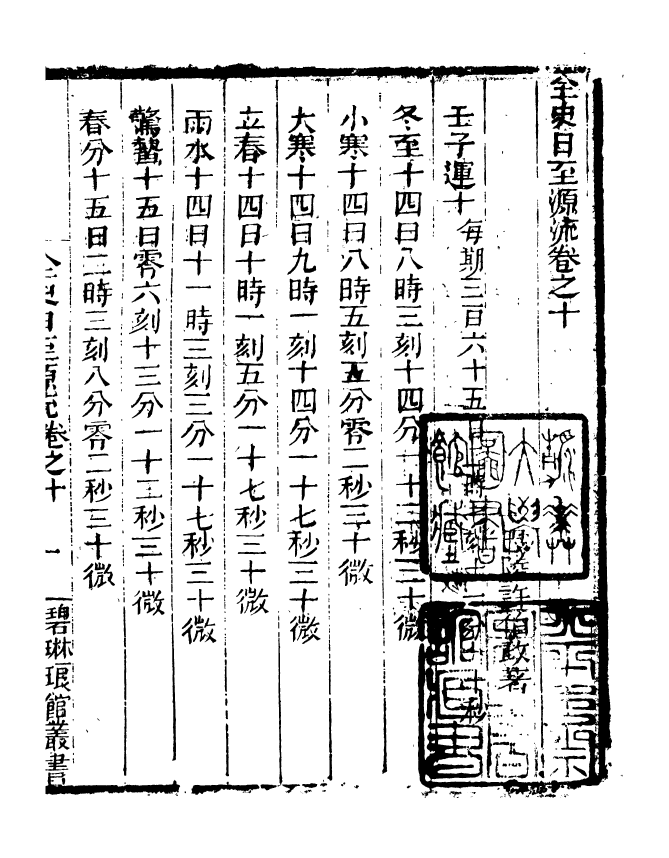 全史日至源流卷之十
許伯政著
壬子運十 每期三百六十五日
冬至十四日八時三刻十四分一十三秒三十微
小寒十四日八時五刻五分零二秒三十微
大寒十四日九時一刻十四分一十七秒三十微
立春十四日十時一刻五分一十七秒三十微
雨水十四日十一時三刻三分一十七秒三十微
驚蟄十五日零六刻十三分一十三秒三十微
春分十五日二時三刻八分零二秒三十微
全史日至源流卷之十 一 碧琳琅館叢書